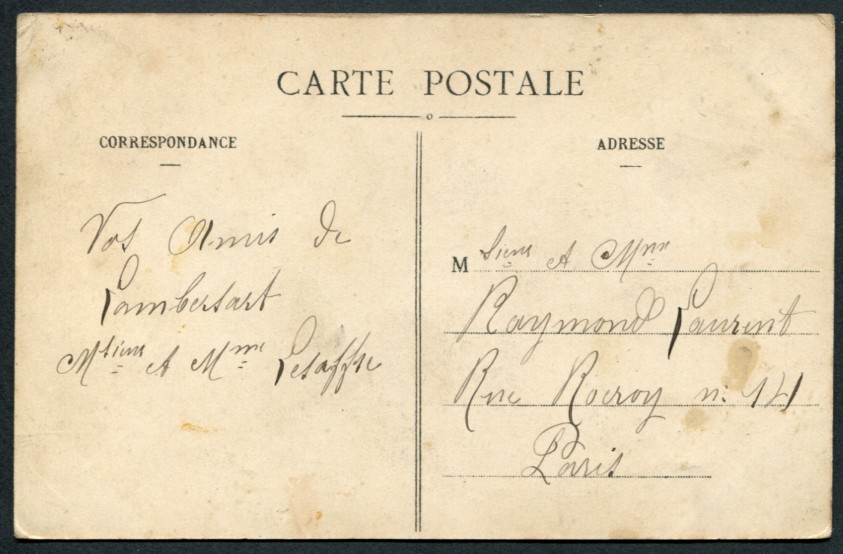 CARTE POSTALE
CORRESPONDANCE
ADRESSE
Vos Amis de
Lambersart
Msieur et Mme Lesaffre
Msieur et Mme
Raymond Laurent
Rue Rocroy n: 14
Paris